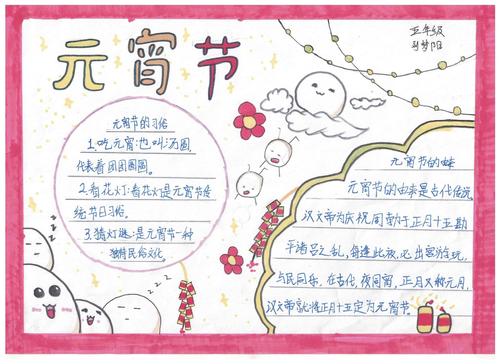 元宵节
五年级
梦阳
元宵节的习俗
1.吃元宵:也叫汤圆,
代表着团团圆圆。
2.看花灯:看花灯是元宵节传
统节日习俗。
3.猜灯迷:是元宵节一种
独特民俗文化
zzz
zzz
元宵节的由来
元宵节的由来是古代传说,
汉文帝为庆祝周勃于正月十五勘
平诸吕之乱,每逢此夜,必出宫游玩,
与民同乐,在古代,夜同宵,正月又称元月,
汉文帝就将正月十五定为元宵节。